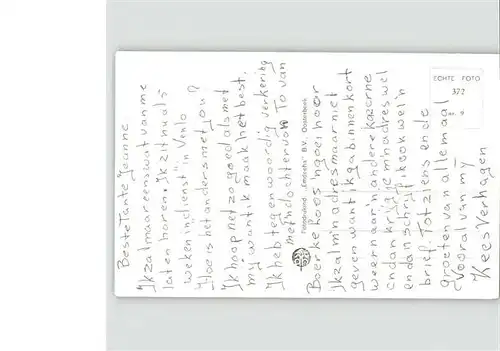 Beste Tante Jeanne
Ik zal maar eens wat van me
laten horen. Ik zit nu al 5
weken in dienst "in Venlo
Hoe is het anders met jou?
Ik hoop net zo goed als met
mij want ik maak het best.
Ik heb tegenwoordig verkering
met n dochter van To van
Boer ke Koos n goei hoor
Ik zal mn adres maar niet
geven want ik ga binnen kort
weer naar n andere kazerne
en dan krijg je mn adres wel
en dan schrijf ik ook wel n
brief. Tot ziens en de
groeten van allemaal
Vooral van mij
Kees Verhagen
Fotodrukind. „Emdeeha" B.V., Oosterbeek
ECHTE FOTO
372